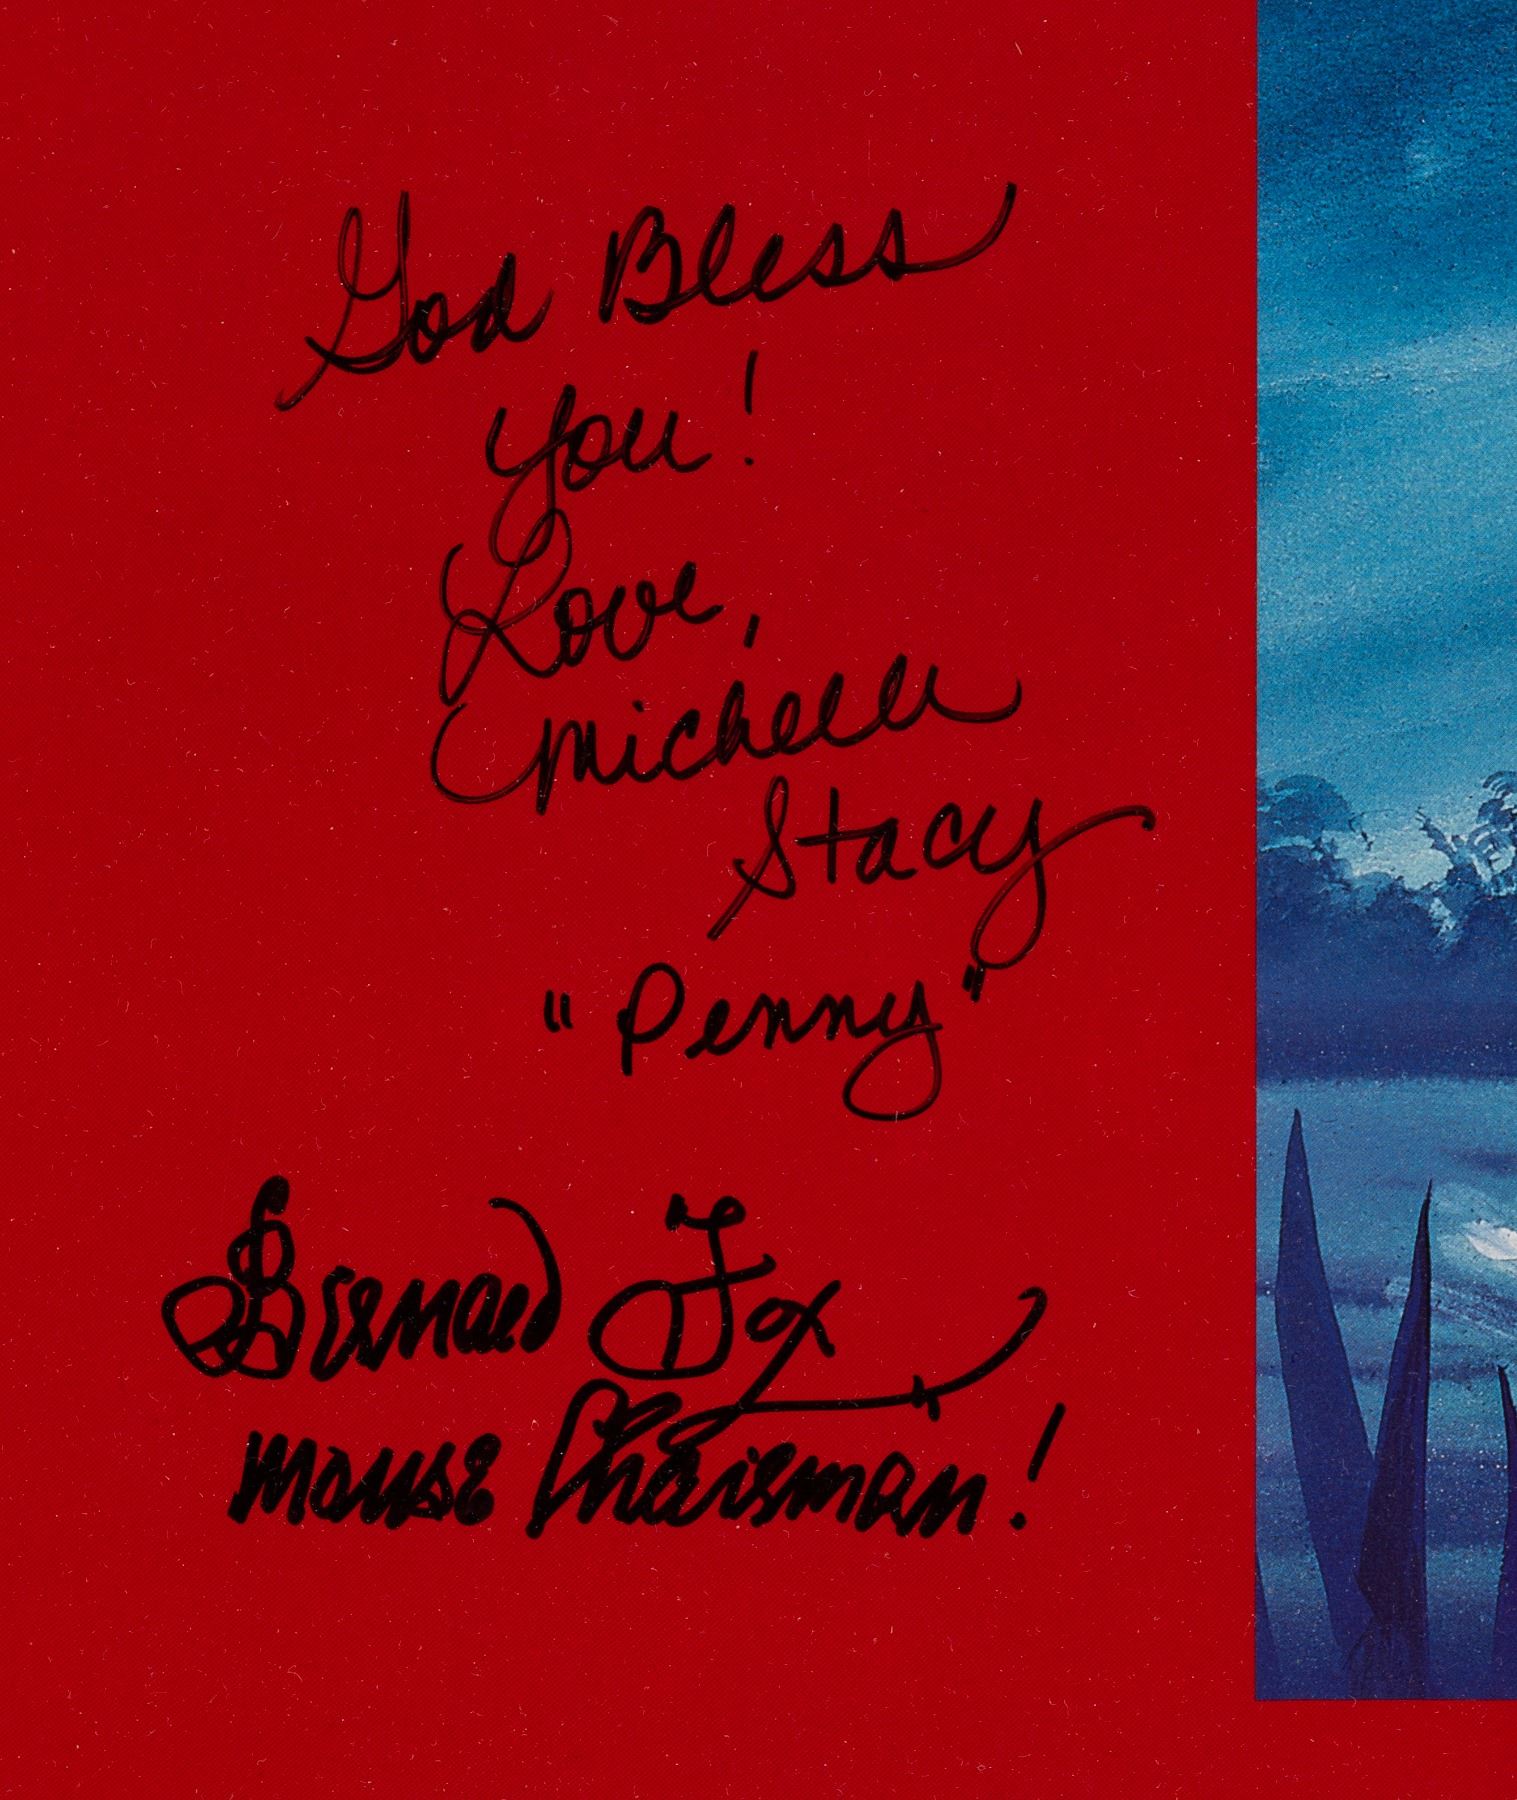 God Bless
you!
Love,
Michelle
Stacy
"Penny"
Bernard Fox
mouse Chairman!